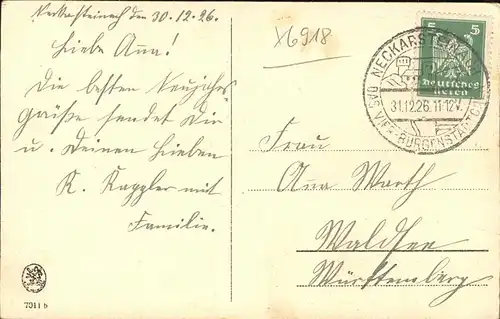 Neckarsteinach den 30.12.26.
Liebe Anna!
Die besten Neujahrs
grüße sendet Dir
u. Deinen Lieben
K. Kappler mit
Familie.
7911 b
X6918
5 5
Deutsches
Reich
NECKARSTEINACH
31.12.26.11-12V.
DAS VIER-BURGENSTÄDTCHEN
Frau
Anna Warth
Waldsee
Württemberg